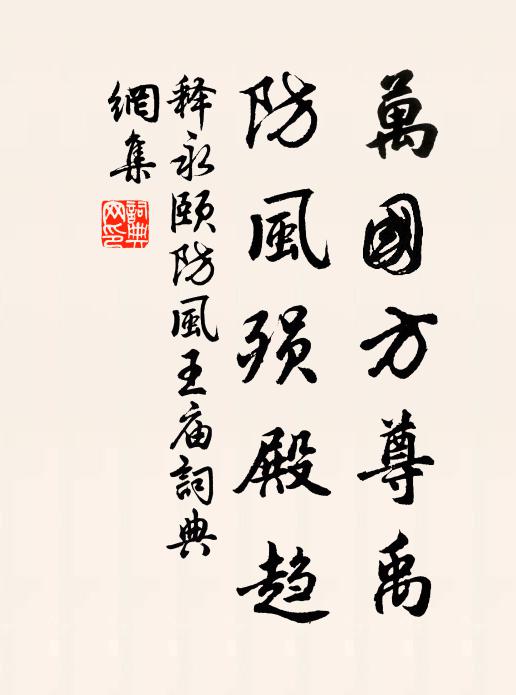 萬國方尊禹
防風殞殿趋
释永頤防風王庙詞典
網集
詞典
网印